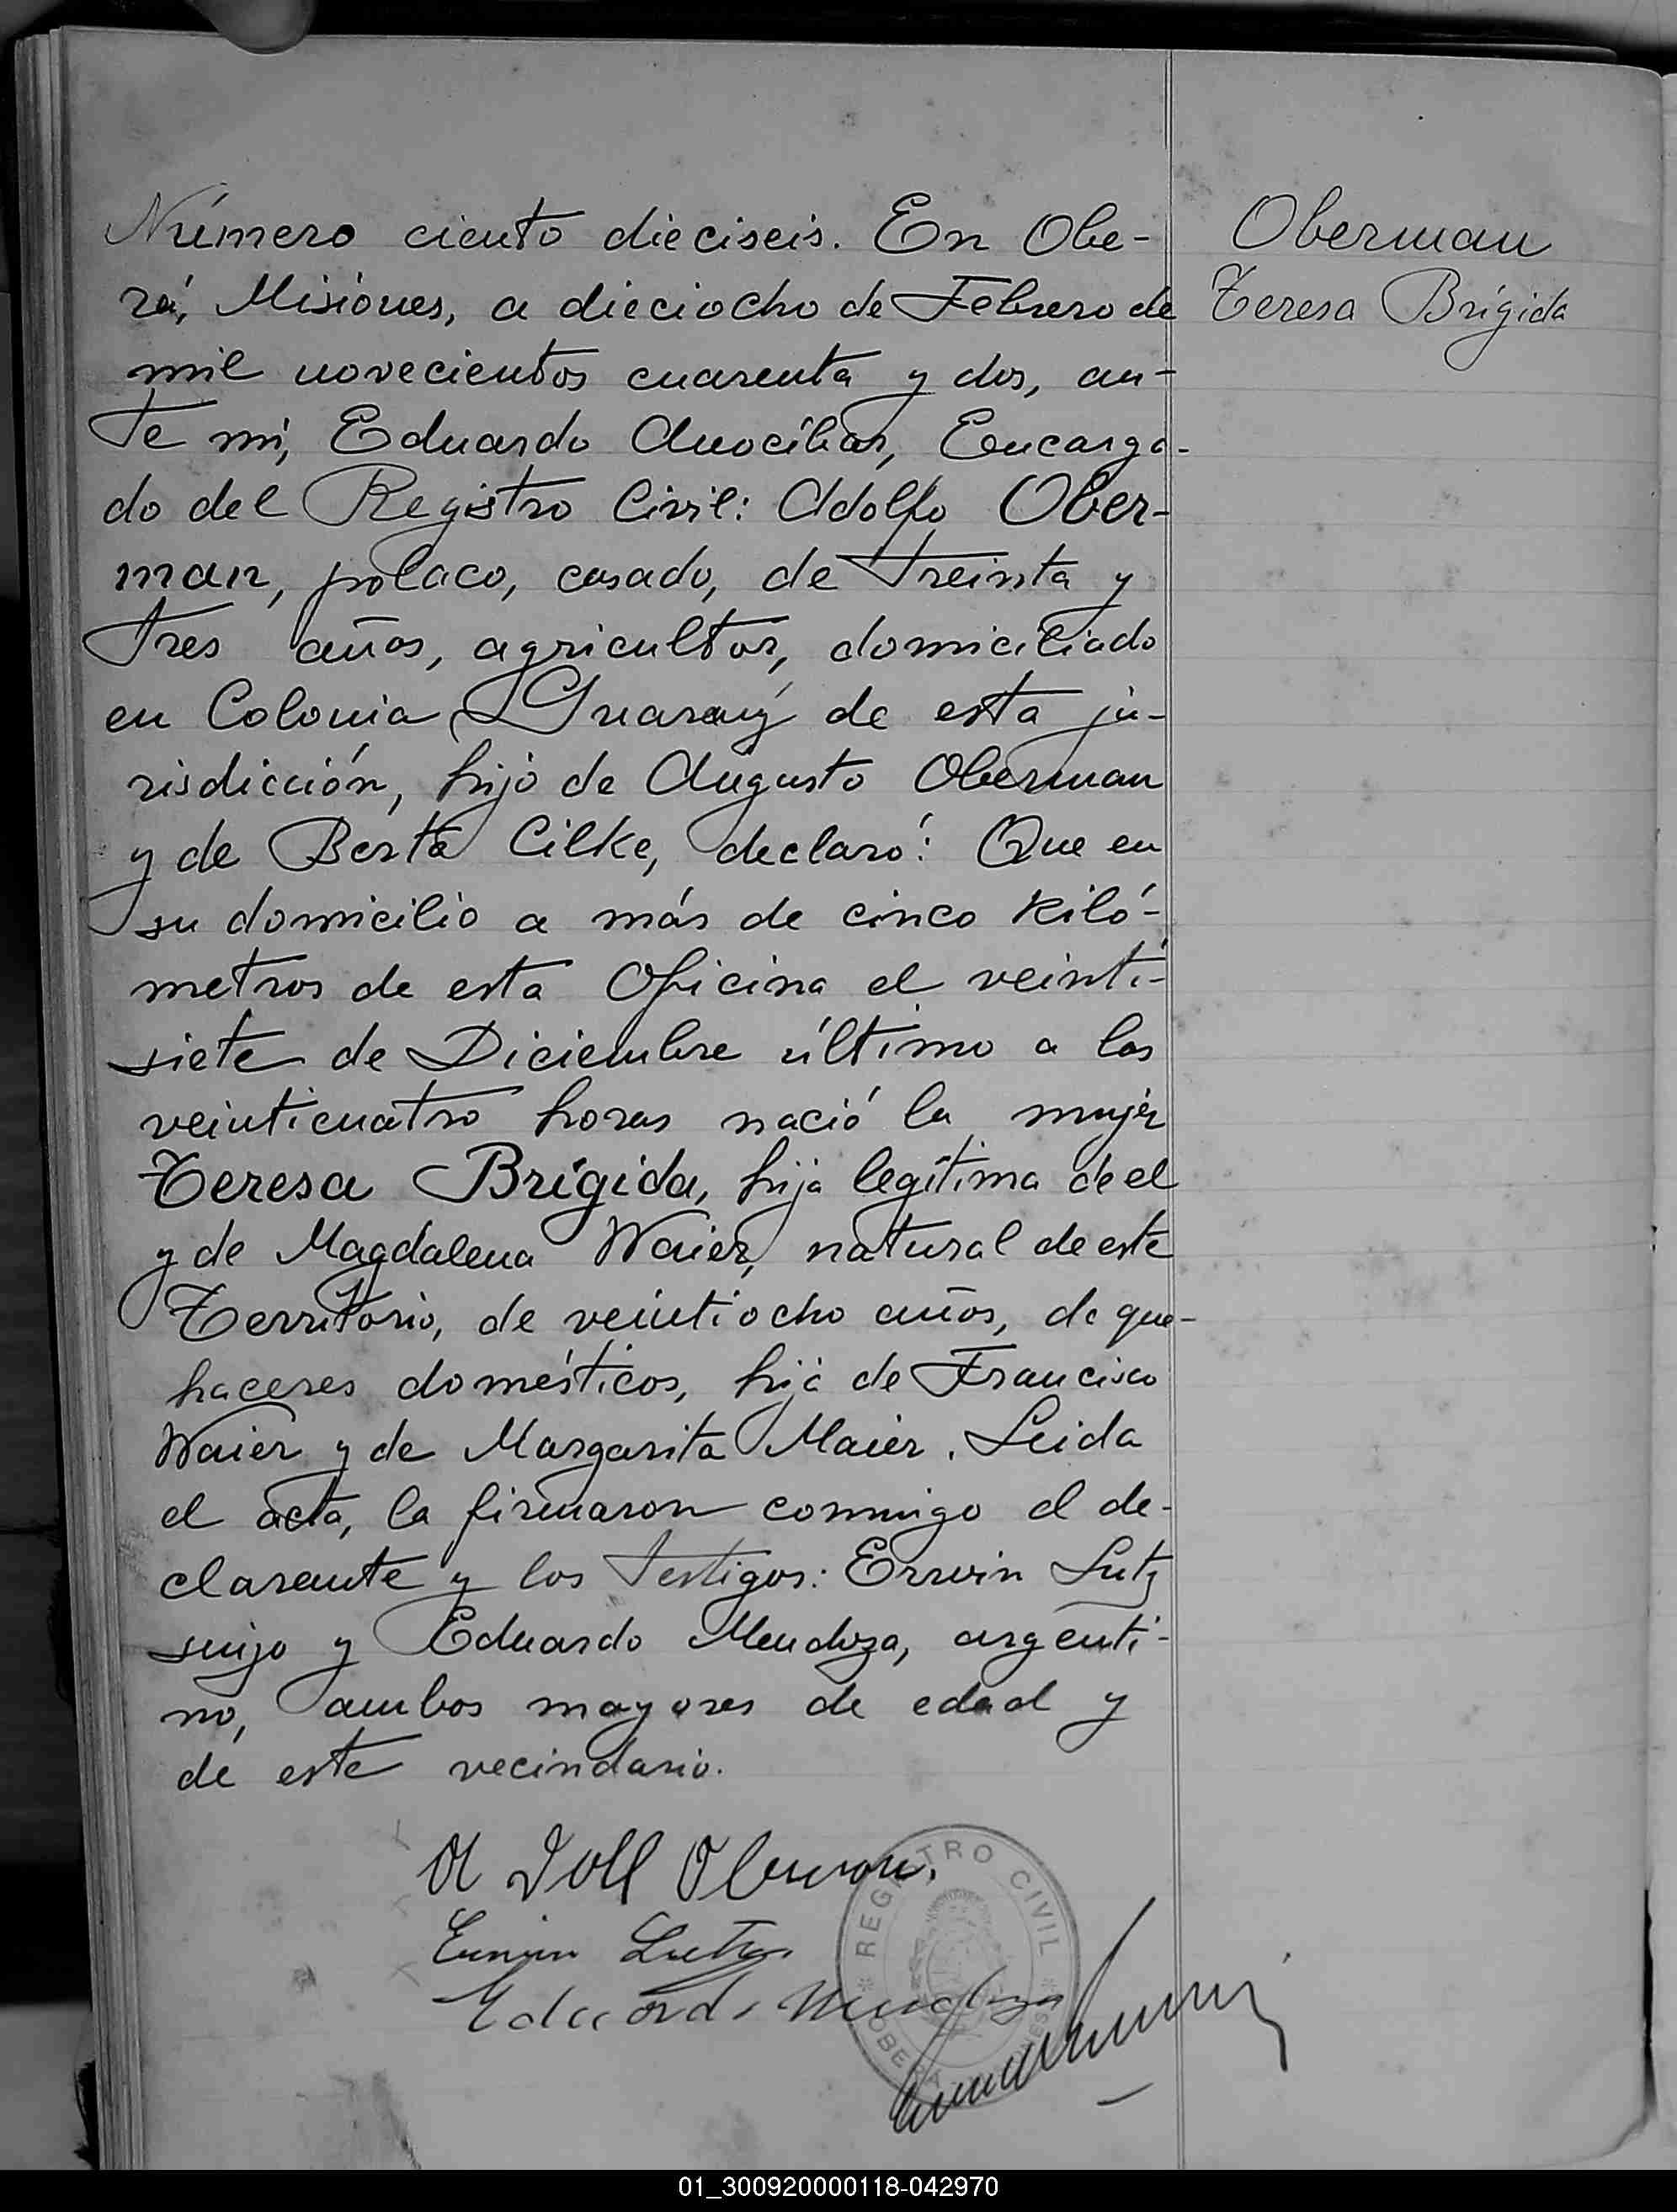 Número ciento dieciseis. En Obe-
rá, Misiones, a dieciocho de Febrero de
mil novecientos cuarenta y dos, an-
te mí, Eduardo Anocíbar, Encarga-
do del Registro Civil: Adolfo Ober-
man, polaco, casado, de treinta y
tres años, agricultor, domiciliado
en Colonia Guaraný de esta ju-
risdicción, hijo de Augusto Oberman
y de Berta Cilke, declaró: Que en
su domicilio a más de cinco kiló-
metros de esta Oficina el veinti-
siete de Diciembre último a las
veinticuatro horas nació la mujer
Teresa Brígida, hija legítima de el
y de Magdalena Waier, natural de este
Territorio, de veintiocho años, de que-
haceres domésticos, hija de Francisco
Waier y de Margarita Maier. Leida
el acta, la firmaron conmigo el de-
clarante y los testigos: Erwin Lutz
suizo y Eduardo Mendoza, argenti-
no, ambos mayores de edad y
de este vecindario.
Oberman
Teresa Brígida
A Dolf Oberman.
Erwin Lutz
Eduardo Mendoza
REGISTRO CIVIL
OBERÁ
01_300920000118-042970